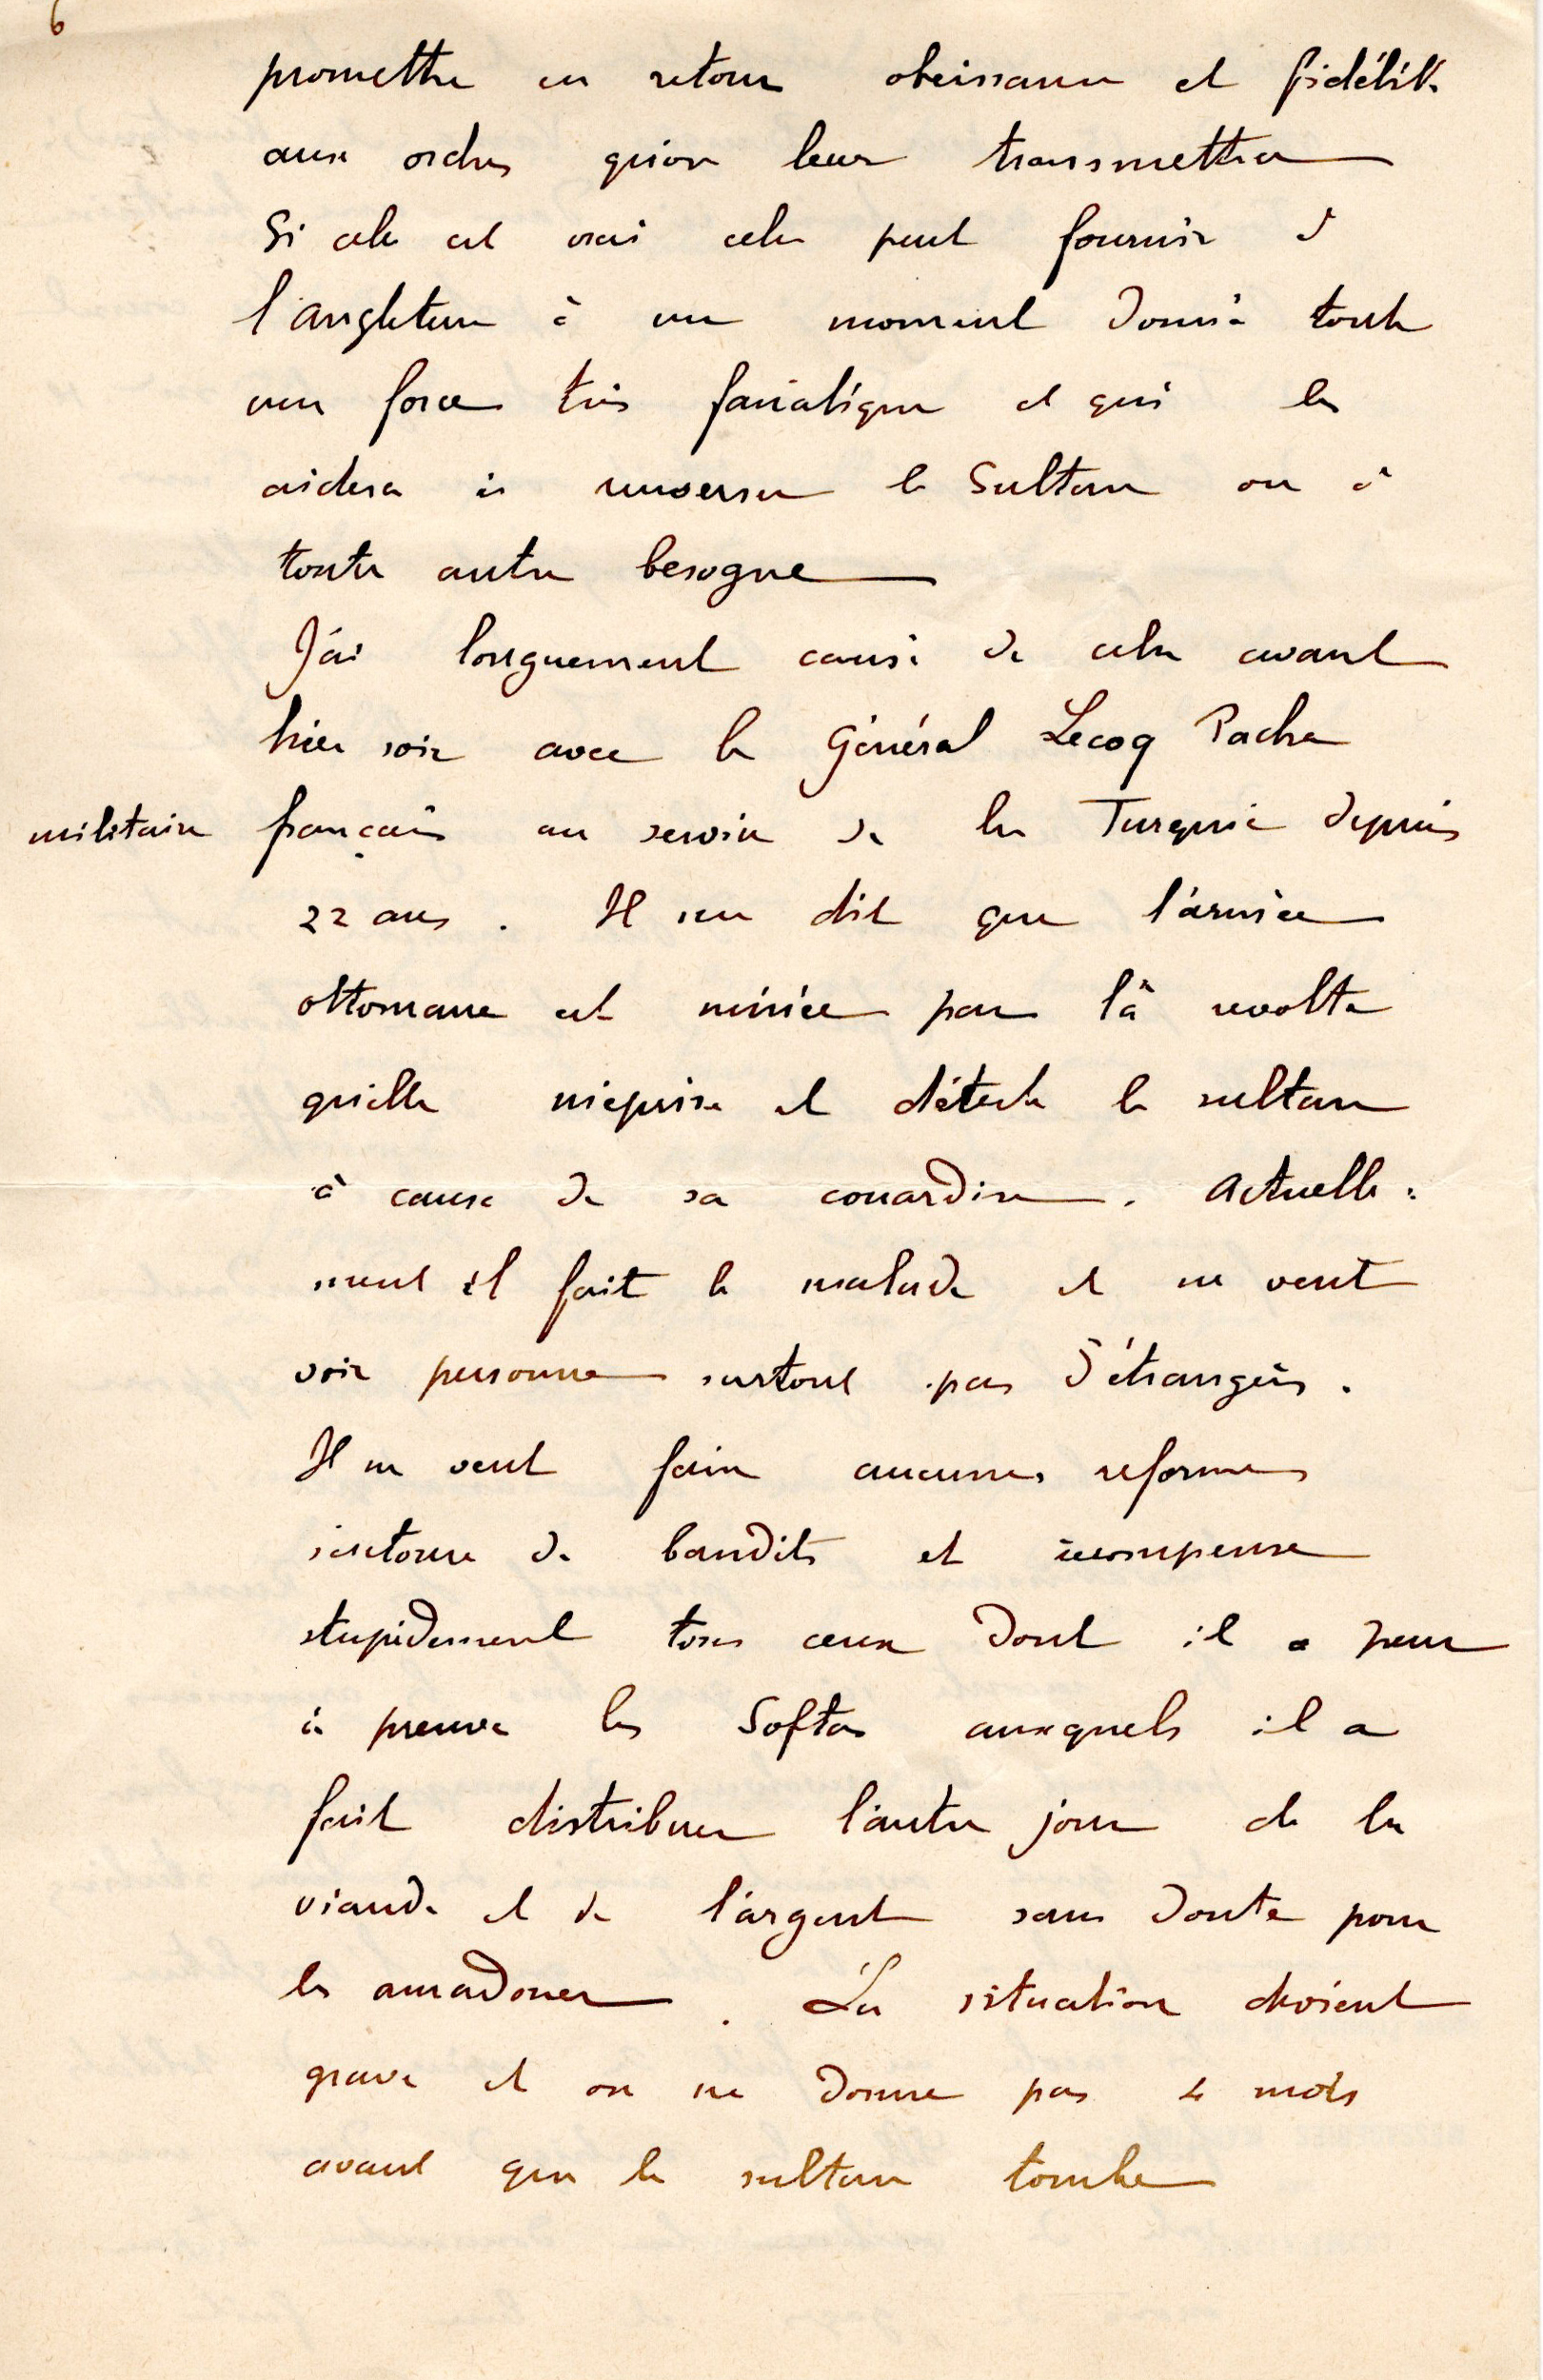 6
promettre en retour obeissance et fidélité
aux ordres qu'on leur transmettra
Si cela est vrai cela peut fournir à
l'Angleterre à un moment donné toute
une force très fanatique et qui les
aidera à renverser le Sultan ou à
toute autre besogne
J'ai longuement causé de cela avant
hier soir avec le Général Lecoq Pacha
militaire français au service de la Turquie depuis
22 ans. Il me dit que l'armée
ottomane est minée par là revolte
qu'elle méprise et déteste le sultan
à cause de sa couardise. Actuelle=
ment il fait le malade et ne veut
voir personne surtout pas d'étrangers.
Il ne veut faire aucunes reformes
s'entoure de bandits et recompense
stupidement tous ceux dont il a peur
à preuve les Softas auxquels il a
fait distribuer l'autre jour de la
viande et de l'argent sans doute pour
les amadouer. La situation devient
grave et on ne donne pas 4 mois
avant que le sultan tombe